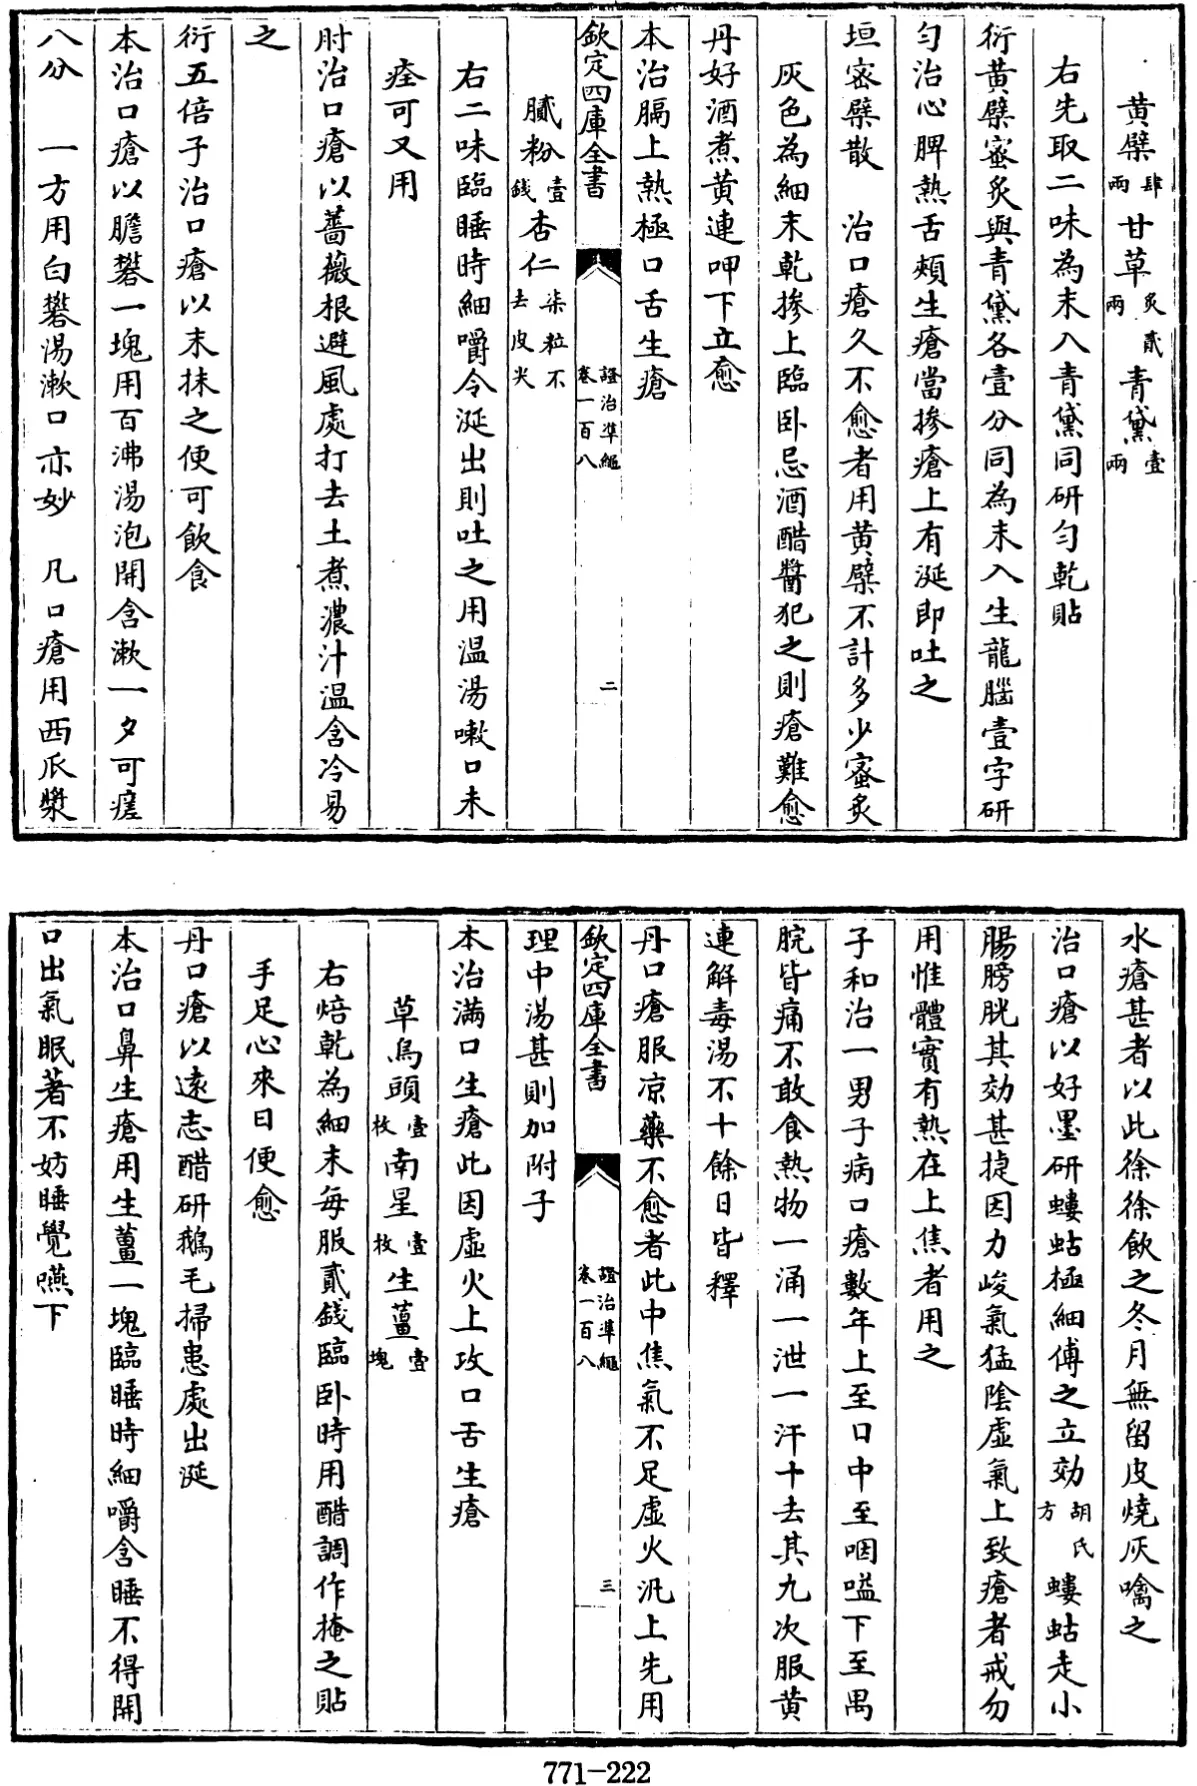 黄蘗肆兩甘草炙貳兩青黛壹兩
右先取二味為末入青黛同研勻乾貼
衍黄蘗蜜炙與青黛各壹分同為末入生龍腦壹字研
勻治心脾熱舌頰生瘡當掺瘡上有涎即吐之
垣蜜蘗散　治口瘡久不愈者用黄蘗不計多少蜜炙
灰色為細末乾掺上臨卧忌酒醋醬犯之則瘡難愈
丹好酒煮黄連呷下立愈
本治膈上熱極口舌生瘡
欽定四庫全書　證治準繩卷一百八　二
膩粉壹錢杏仁柒粒不去皮尖
右二味臨睡時細嚼令涎出則吐之用温湯嗽口未
痊可又用
肘治口瘡以薔薇根避風處打去土煮濃汁温含冷易
之
衍五倍子治口瘡以末抹之便可飲食
本治口瘡以膽礬一塊用百沸湯泡開含漱一夕可瘥
八分　一方用白礬湯漱口亦妙　凡口瘡用西瓜漿
水瘡甚者以此徐徐飲之冬月無留皮燒灰噙之
治口瘡以好墨研螻蛄極細傅之立効胡氏方螻蛄走小
腸膀胱其効甚捷因力峻氣猛陰虛氣上致瘡者戒勿
用惟體實有熱在上焦者用之
子和治一男子病口瘡數年上至口中至咽嗌下至胃
脘皆痛不敢食熱物一涌一泄一汗十去其九次服黄
連解毒湯不十餘日皆釋
丹口瘡服凉藥不愈者此中焦氣不足虛火汎上先用
欽定四庫全書　證治準繩卷一百八　三
理中湯甚則加附子
本治滿口生瘡此因虛火上攻口舌生瘡
草烏頭壹枚南星壹枚生薑壹塊
右焙乾為細末每服貳錢臨卧時用醋調作掩之貼
手足心來日便愈
丹口瘡以遠志醋研鵝毛掃患處出涎
本治口鼻生瘡用生薑一塊臨睡時細嚼含睡不得開
口出氣眠著不妨睡覺嚥下
771-222